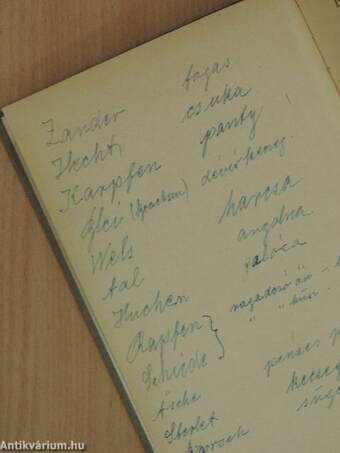 Zander fogas
Hecht csuka
Karpfen ponty
Blei (Brachsen) dévérkeszeg.
Wels harcsa
Aal angolna
Huchen galóca
Rapfen } ragadozó őn -
Schiede } " "
Äsche pénzes p
Sterlet kecseg
sügé
Antikvárium.hu